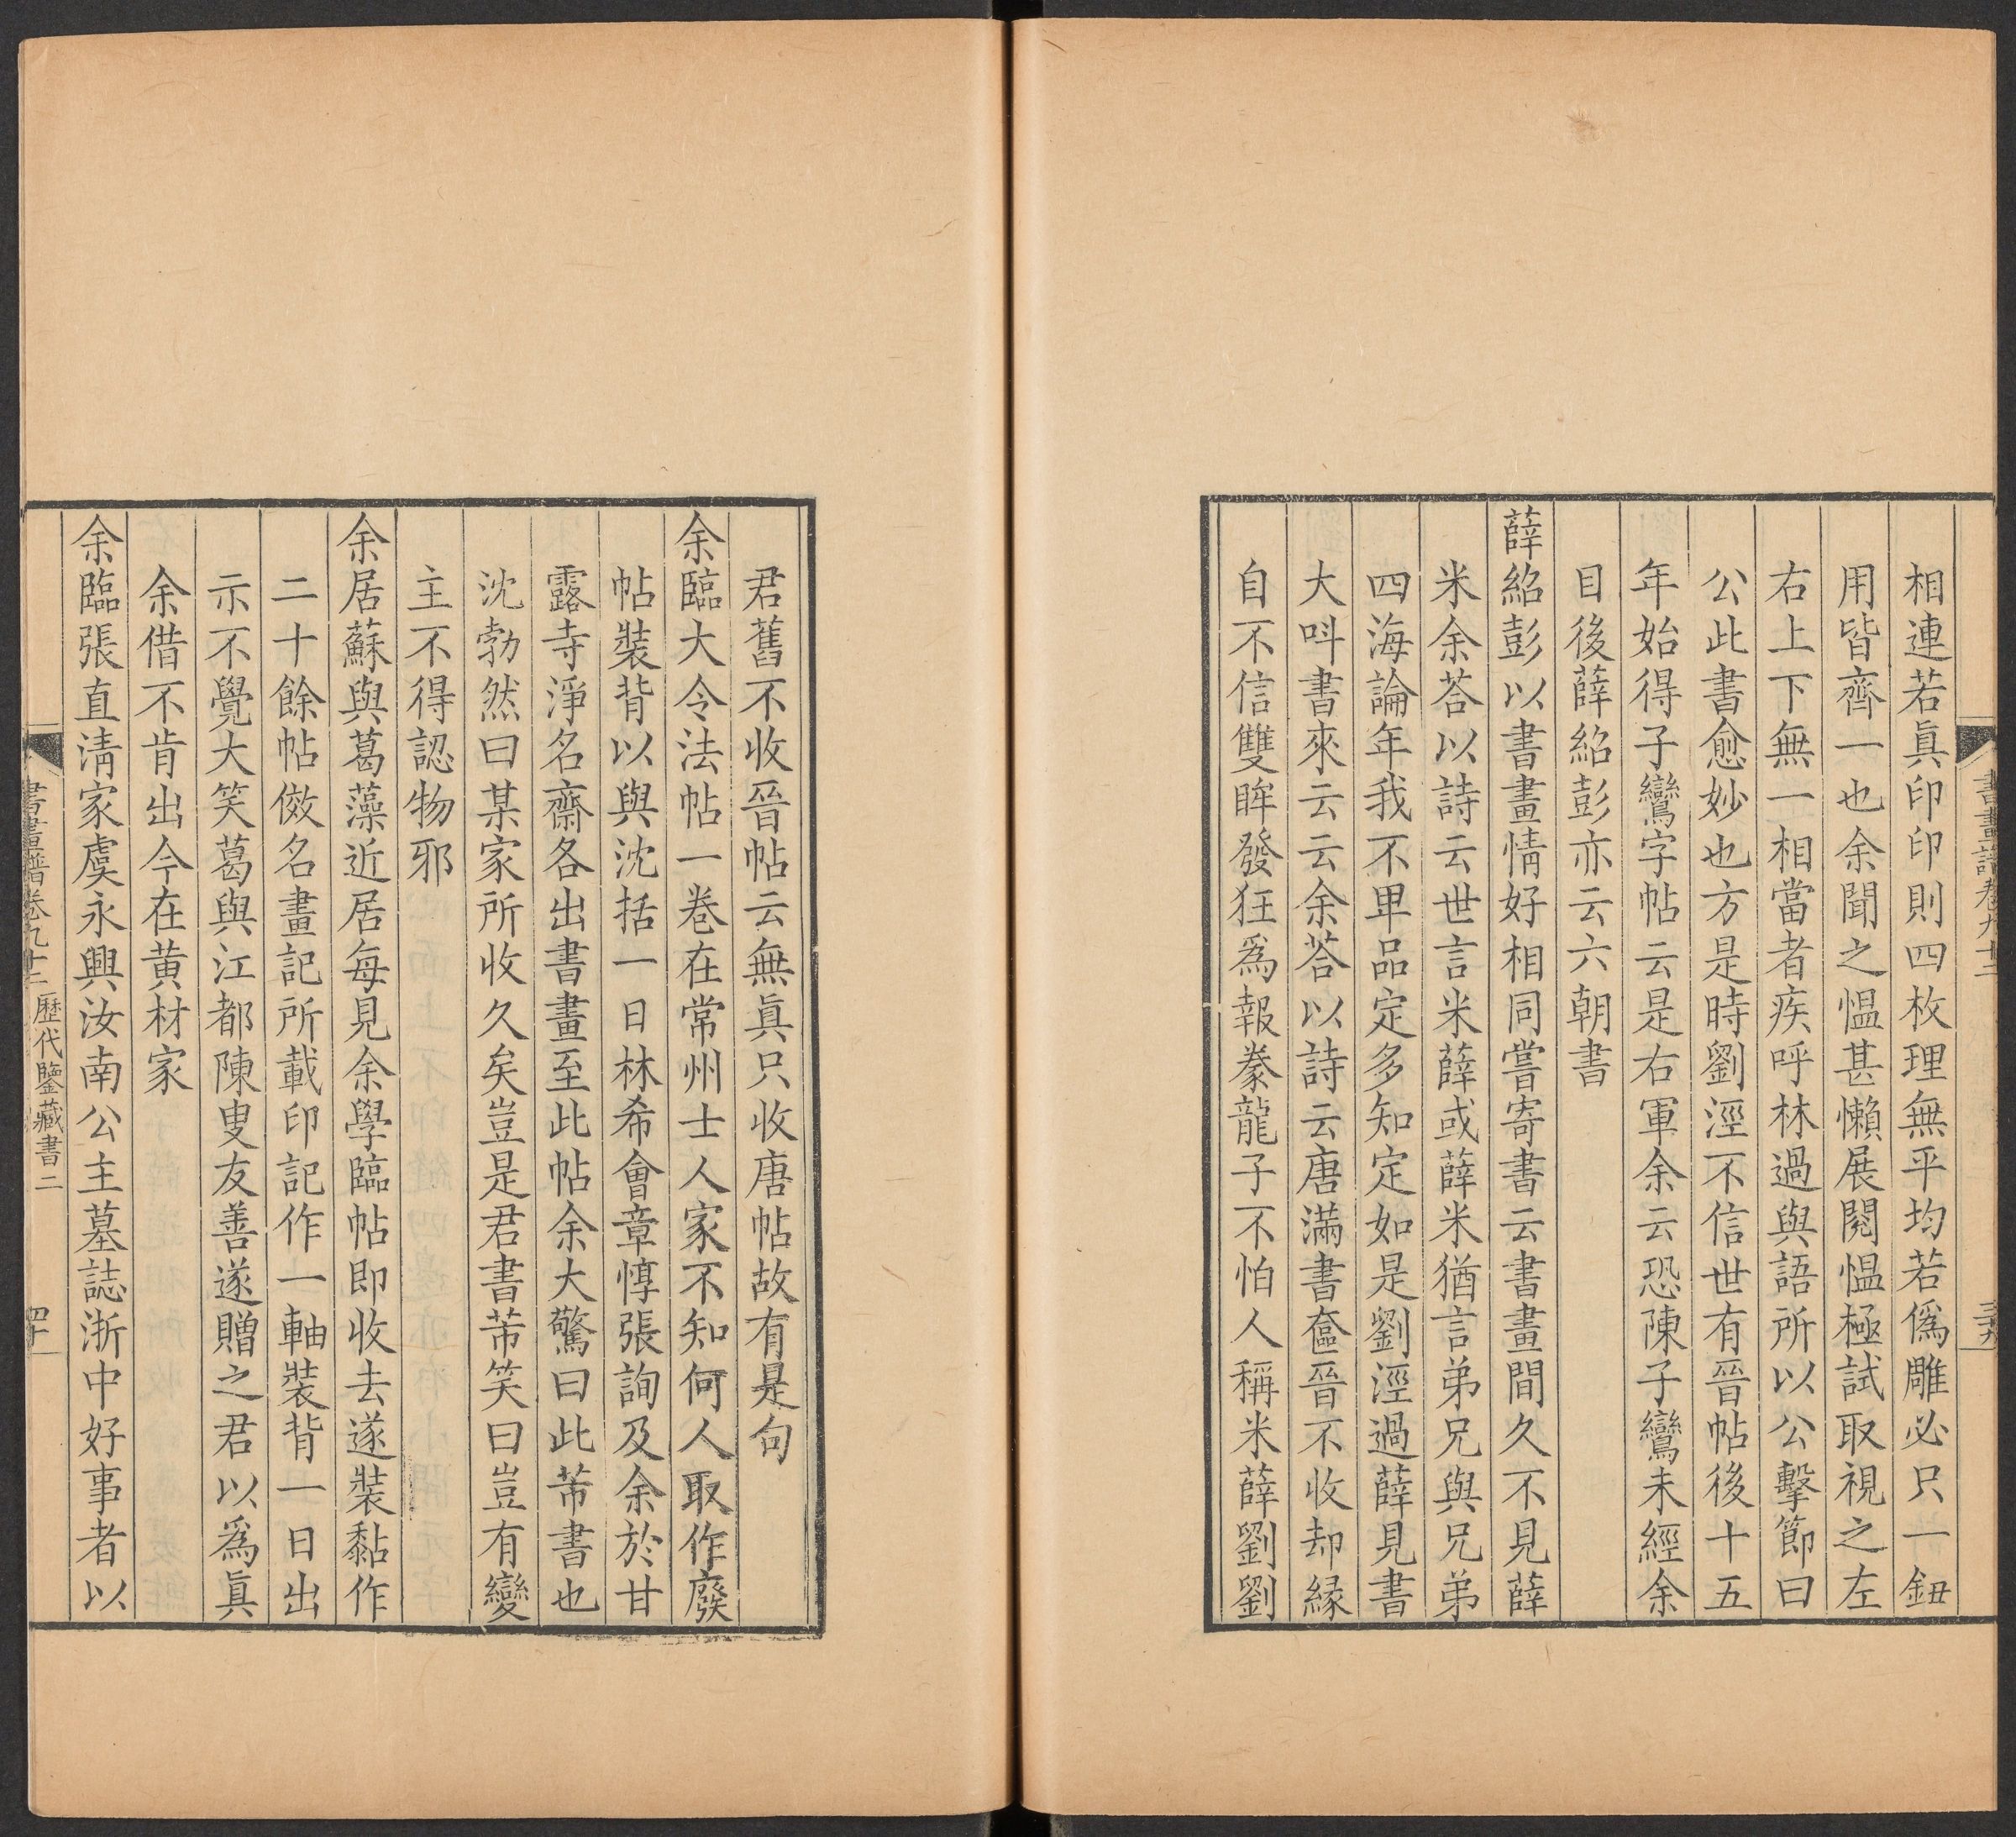 書畫譜卷九十二
三十九
相連若眞印印則四枚理無平均若僞雕必只一鈕
用皆齊一也余聞之愠甚懶展閱愠極試取視之左
右上下無一相當者疾呼林過與語所以公擊節曰
公此書愈妙也方是時劉涇不信世有晉帖後十五
年始得子鸞字帖云是右軍余云恐陳子鸞未經余
目後薛紹彭亦云六朝書
薛紹彭以書畫情好相同嘗寄書云書畫間久不見薛
米余荅以詩云世言米薛或薛米猶言弟兄與兄弟
四海論年我不卑品定多知定如是劉涇過薛見書
大呌書來云云余荅以詩云唐滿書奩晉不收却緣
自不信雙眸發狂爲報豢龍子不怕人稱米薛劉劉
君舊不收晉帖云無眞只收唐帖故有是句
余臨大令法帖一卷在常州士人家不知何人取作廢
帖裝背以與沈括一日林希會章惇張詢及余於甘
露寺淨名齋各出書畫至此帖余大驚曰此芾書也
沈勃然曰某家所收久矣豈是君書芾笑曰豈有變
主不得認物邪
余居蘇與葛藻近居每見余學臨帖即收去遂裝黏作
二十餘帖倣名畫記所載印記作一軸裝背一日出
示不覺大笑葛與江都陳叟友善遂贈之君以爲眞
余借不肯出今在黄材家
余臨張直淸家虞永興汝南公主墓誌浙中好事者以
書畫譜卷九十二 歷代鑒藏書二
四十